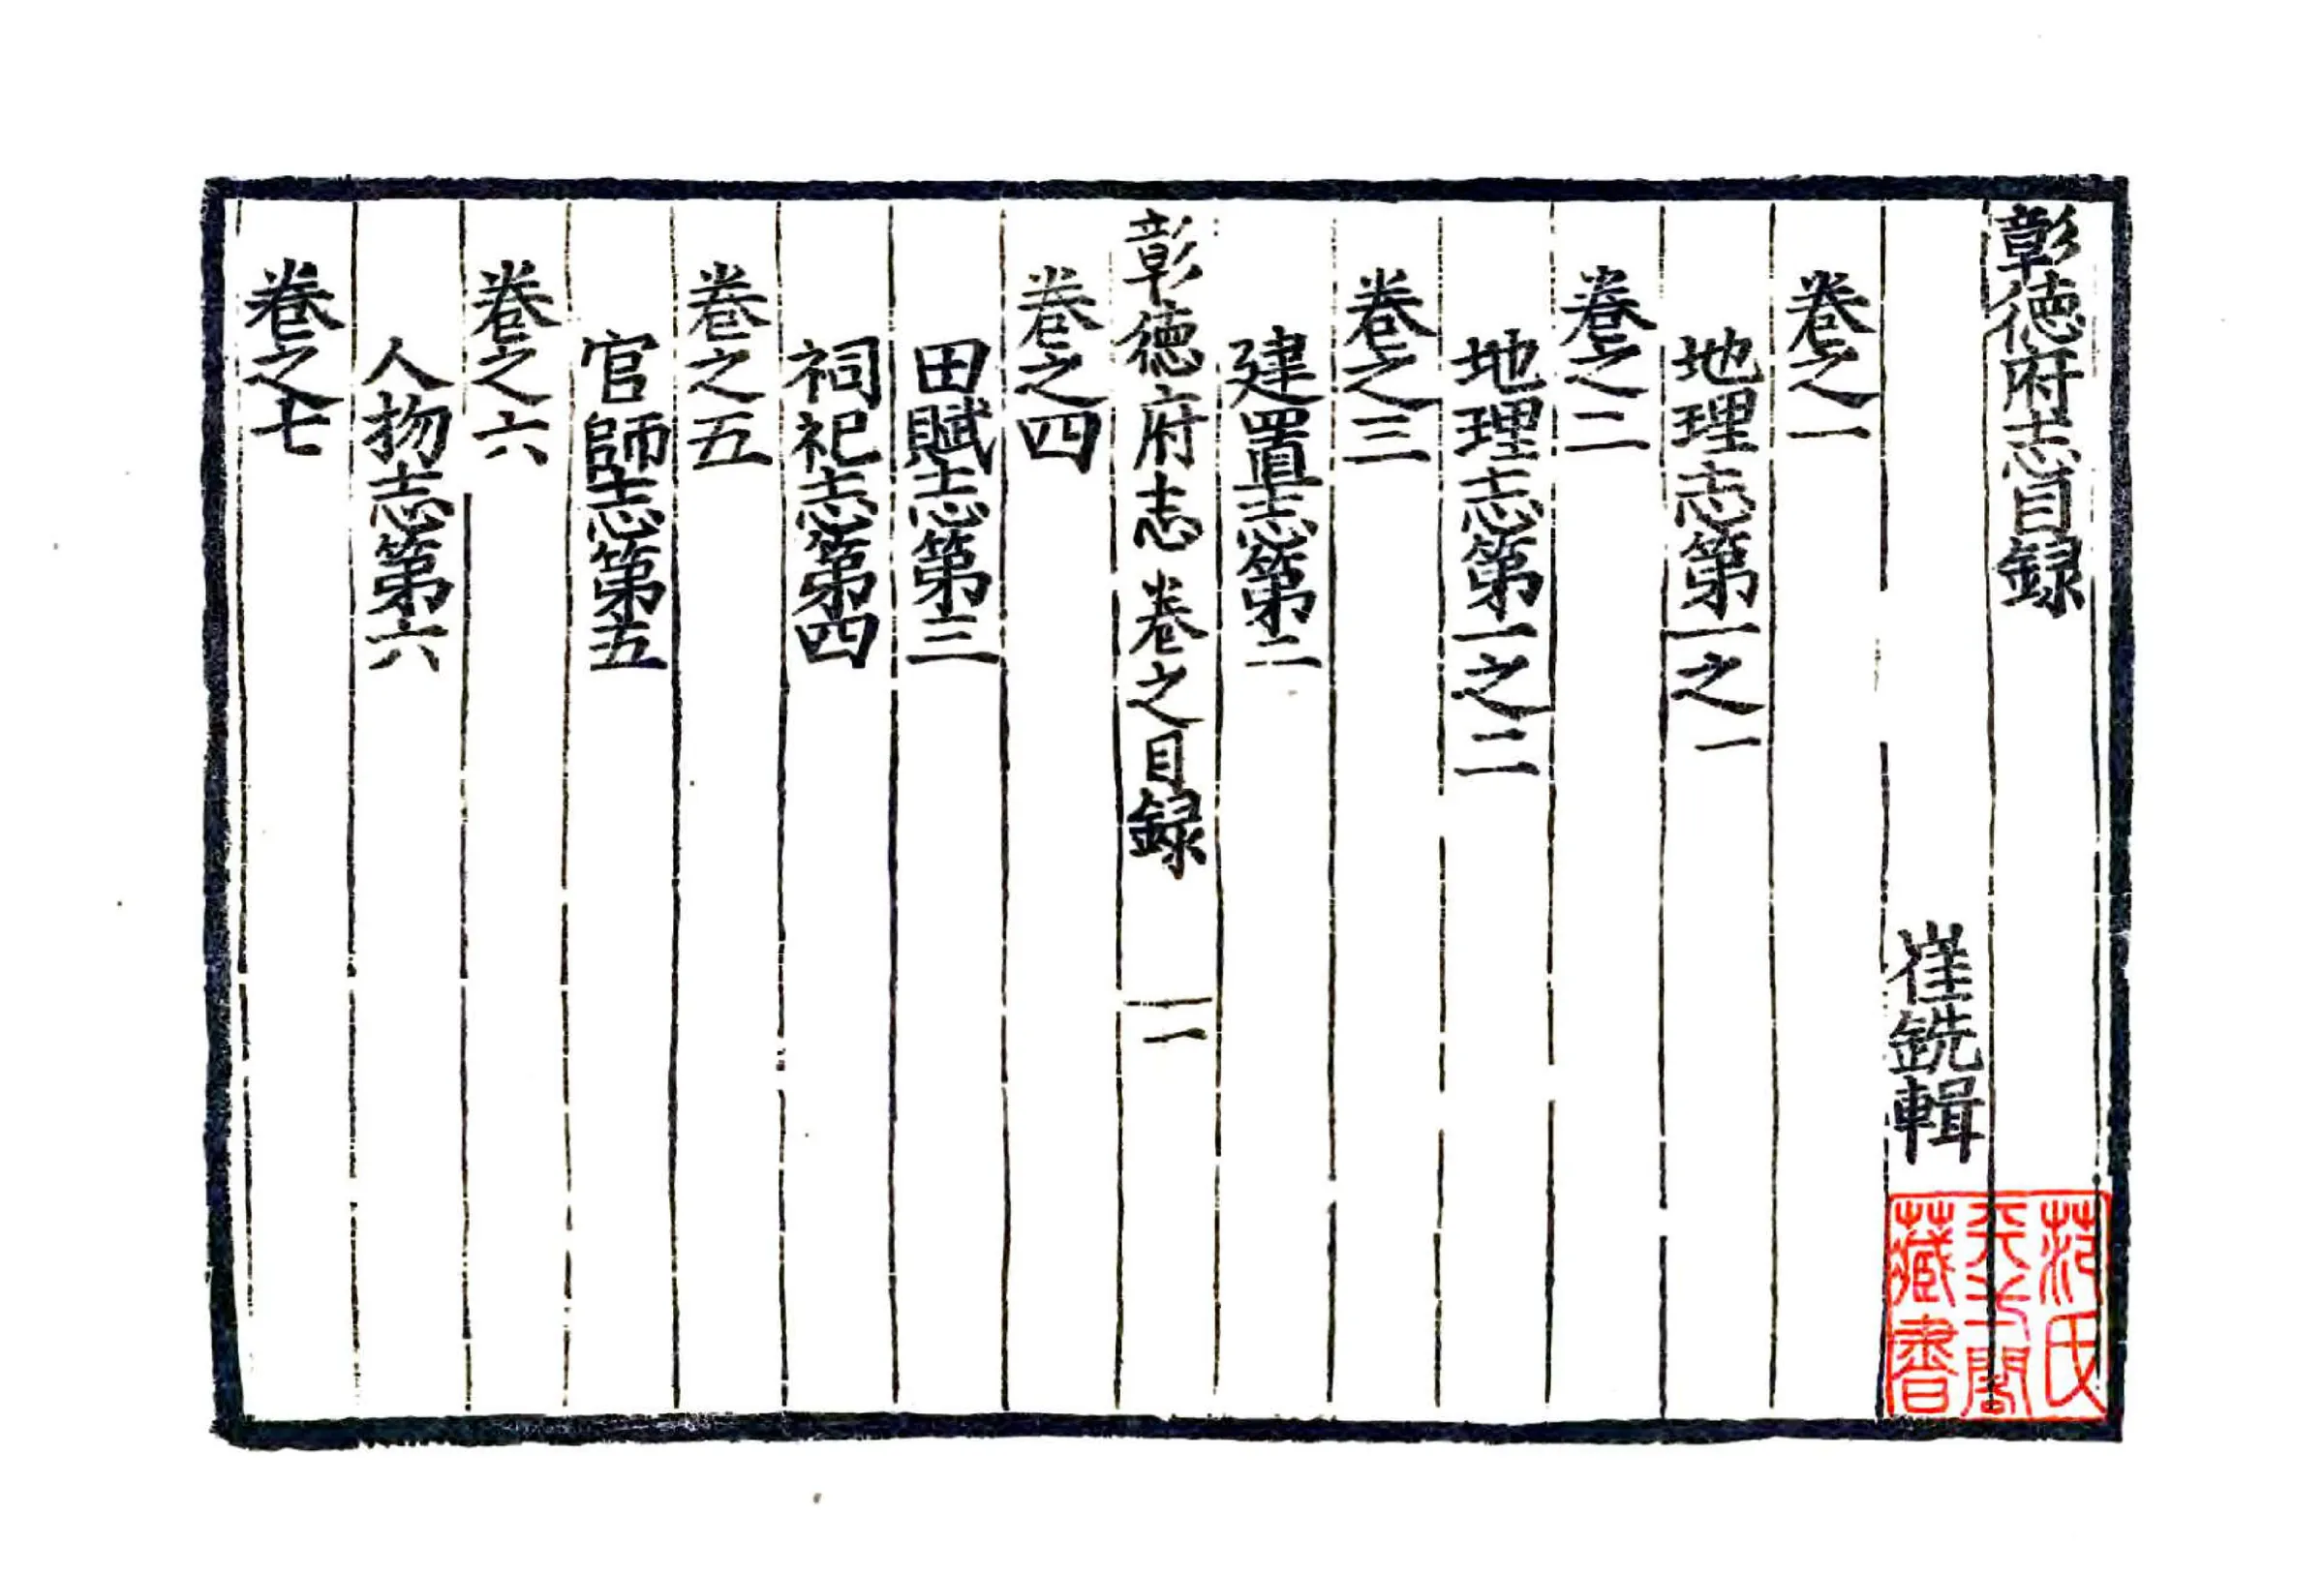 彰徳府志目録
崔銑輯
范氏
天一閣
藏書
卷之一
地理志第一之一
卷之二
地理志第一之二
卷之三
建置志第二
彰徳府志 卷之目録 一
卷之四
田賦志第三
祠祀志第四
卷之五
官師志第五
卷之六
人物志第六
卷之七